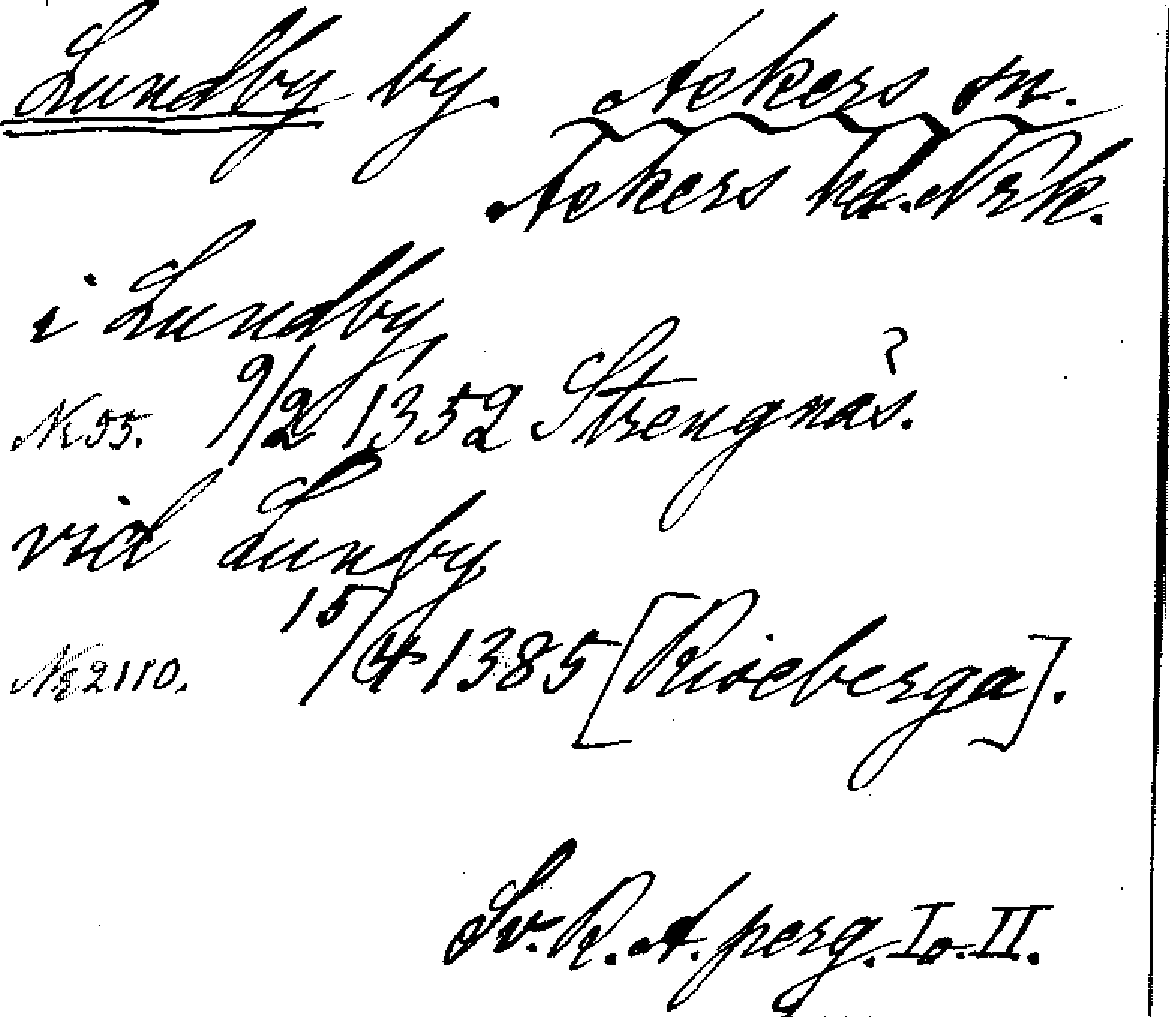 Lundby by. Askers sn.
Askers hd. Nrk.
i Lundby
N 55. 9/2 1352 Strengnäs. ?
vid Lunby
N: 2110. 15/4 1385 [Riseberga].
Sv. R. A. perg. I o. II.